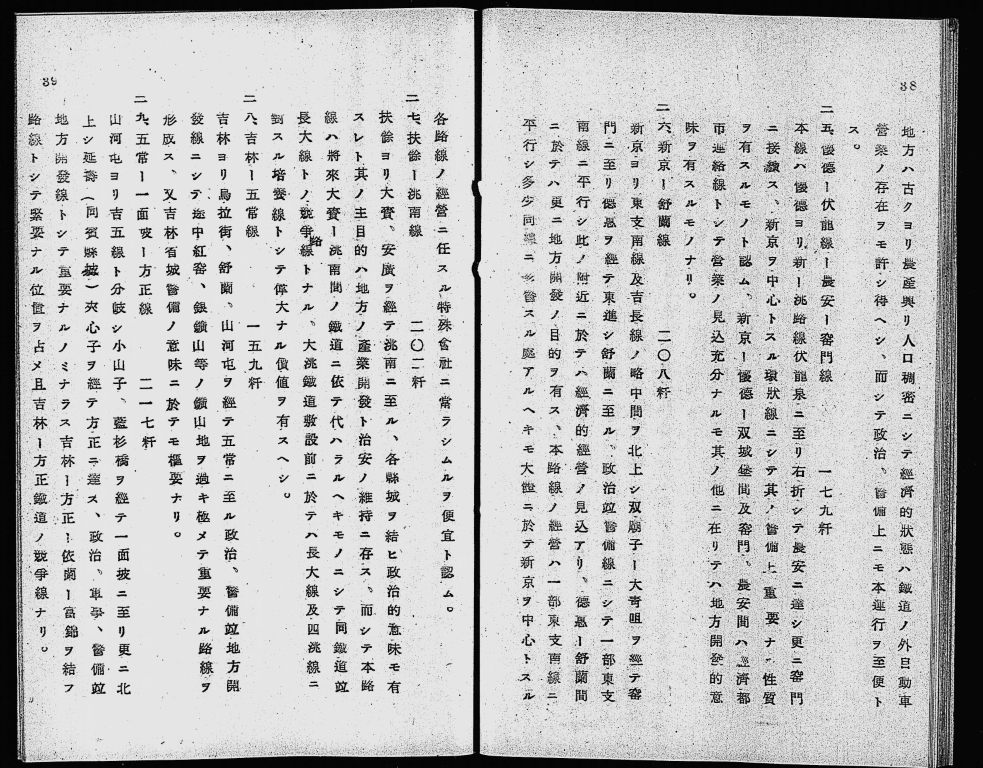 38
地方ハ古クヨリ農產興リ人口稠密ニシテ經濟的狀態ハ鐵道ノ外自動車
營業ノ存在ヲモ許シ得ヘシ、而シテ政治、警備上ニモ本運行ヲ至便ト
ス。
二五、優德ー伏龍線ー農安ー窑門線 一七九粁
本線ハ優德ヨリ新ー洮路線伏龍泉ニ至リ右折シテ農安ニ達シ更ニ窑門
ニ接續ス、新京ヲ中心トスル環狀線ニシテ其ノ警備上重要ナル性質
ヲ有スルモノト認ム、新京ー優德ー双城堡間及窑門、農安間ハ經濟都
市連絡線トシテ營業ノ見込充分ナルモ其ノ他ニ在リテハ地方開發的意
味ヲ有スルモノナリ。
二六、新京ー舒蘭線 二〇八粁
新京ヨリ東支南線及吉長線ノ略中間ヲ北上シ双廟子ー大青咀ヲ經テ窑
門ニ至リ德惠ヲ經テ東進シ舒蘭ニ至ル、政治竝警備線ニシテ一部東支
南線ニ平行シ此ノ附近ニ於テハ經濟的經營ノ見込アリ、德惠ー舒蘭間
ニ於テハ更ニ地方開發ノ目的ヲ有ス、本路線ノ經營ハ一部東支南線ニ
平行シ多少同線ニ影響スル處アルヘキモ大體ニ於テ新京ヲ中心トスル
39
各路線ノ經營ニ任スル特殊會社ニ當ラシムルヲ便宜ト認ム。
二七、扶餘ー洮南線 二〇二粁
扶餘ヨリ大賚、安廣ヲ經テ洮南ニ至ル、各縣城ヲ結ヒ政治的意味モ有
スレト其ノ主目的ハ地方ノ產業開發ト治安ノ維持ニ存ス、而シテ本路
線ハ將來大賚ー洮南間ノ鐵道ニ依テ代ハラルヘキモノニシテ同鐵道竝
長大線トノ競爭路線トナル、大洮鐵道敷設前ニ於テハ長大線及四洮線ニ
對スル培養線トシテ偉大ナル價値ヲ有スヘシ。
二八、吉林ー五常線 一五九粁
吉林ヨリ烏拉街、舒蘭、山河屯ヲ經テ五常ニ至ル政治、警備竝地方開
發線ニシテ途中紅窑、銀鑛山等ノ鑛山地ヲ過キ極メテ重要ナル路線ヲ
形成ス、又吉林省城警備ノ意味ニ於テモ樞要ナリ。
二九、五常ー一面坡ー方正線 二一七粁
山河屯ヨリ吉五線ト分岐シ小山子、藍杉橋ヲ經テ一面坡ニ至リ更ニ北
上シ延壽(同賓縣城)夾心子ヲ經テ方正ニ達ス、政治、軍事、警備竝
地方開發線トシテ重要ナルノミナラス吉林ー方正ー依蘭ー富錦ヲ結フ
路線トシテ緊要ナル位置ヲ占メ且吉林ー方正鐵道ノ競爭線ナリ。